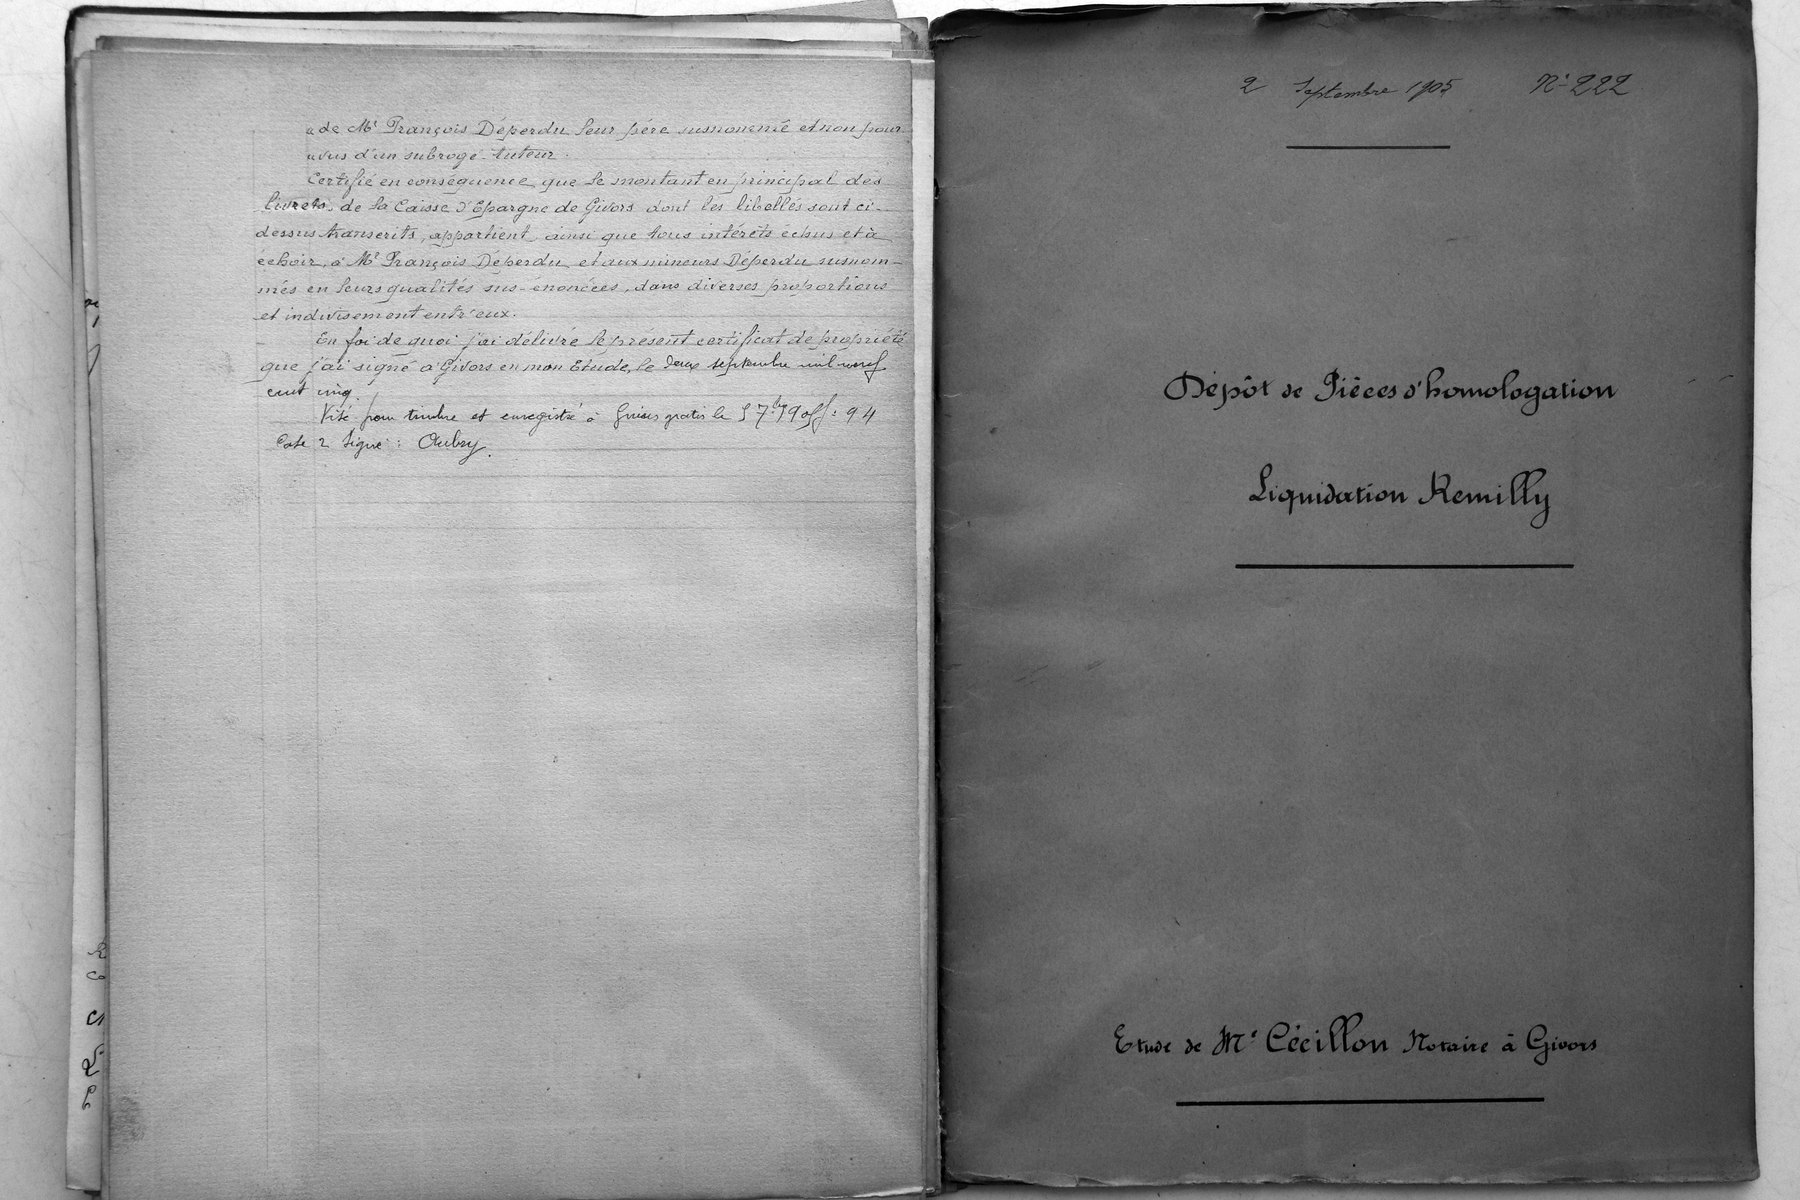 « de Mr François Déperdu leur père susnommé et non pour-
« vus d'un subrogé-tuteur.
Certifié en conséquence que le montant en principal des
livrets de la Caisse d'Epargne de Givors dont les libellés sont ci-
dessus transcrits, appartient, ainsi que tous intérêts échus et à
échoir, à Mr François Déperdu et aux mineurs Déperdu susnom-
més en leurs qualités sus-énoncées, dans diverses proportions
et indivisement entr'eux.
En foi de quoi j'ai délivré le présent certificat de propriété
que j'ai signé à Givors en mon Etude, le deux septembre mil neuf
cent cinq.
Visé pour timbre et enregistré à Givors gratis le 5 7bre 1905 fo 94
Case 2 Signé : Aubry.
2 Septembre 1905 No 222
Dépôt de Pièces d'homologation
Liquidation Remilly
Etude de Me Cécillon Notaire à Givors